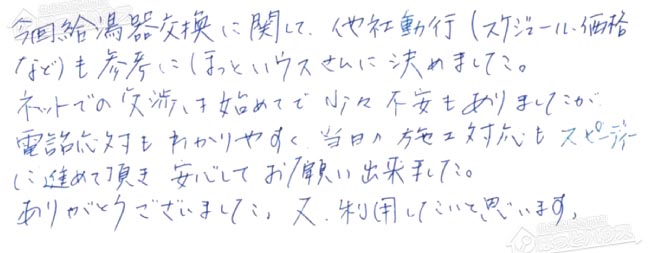 今回給湯器交換に関して、他社動行(スケジュール、価格
など)も参考にほっとハウスさんに決めました。
ネットでの交渉は始めてで少々不安もありましたが
電話応対もわかりやすく、当日の施工対応もスピーディー
に進めて頂き安心してお願い出来ました。
ありがとうございました。又、利用したいと思います。